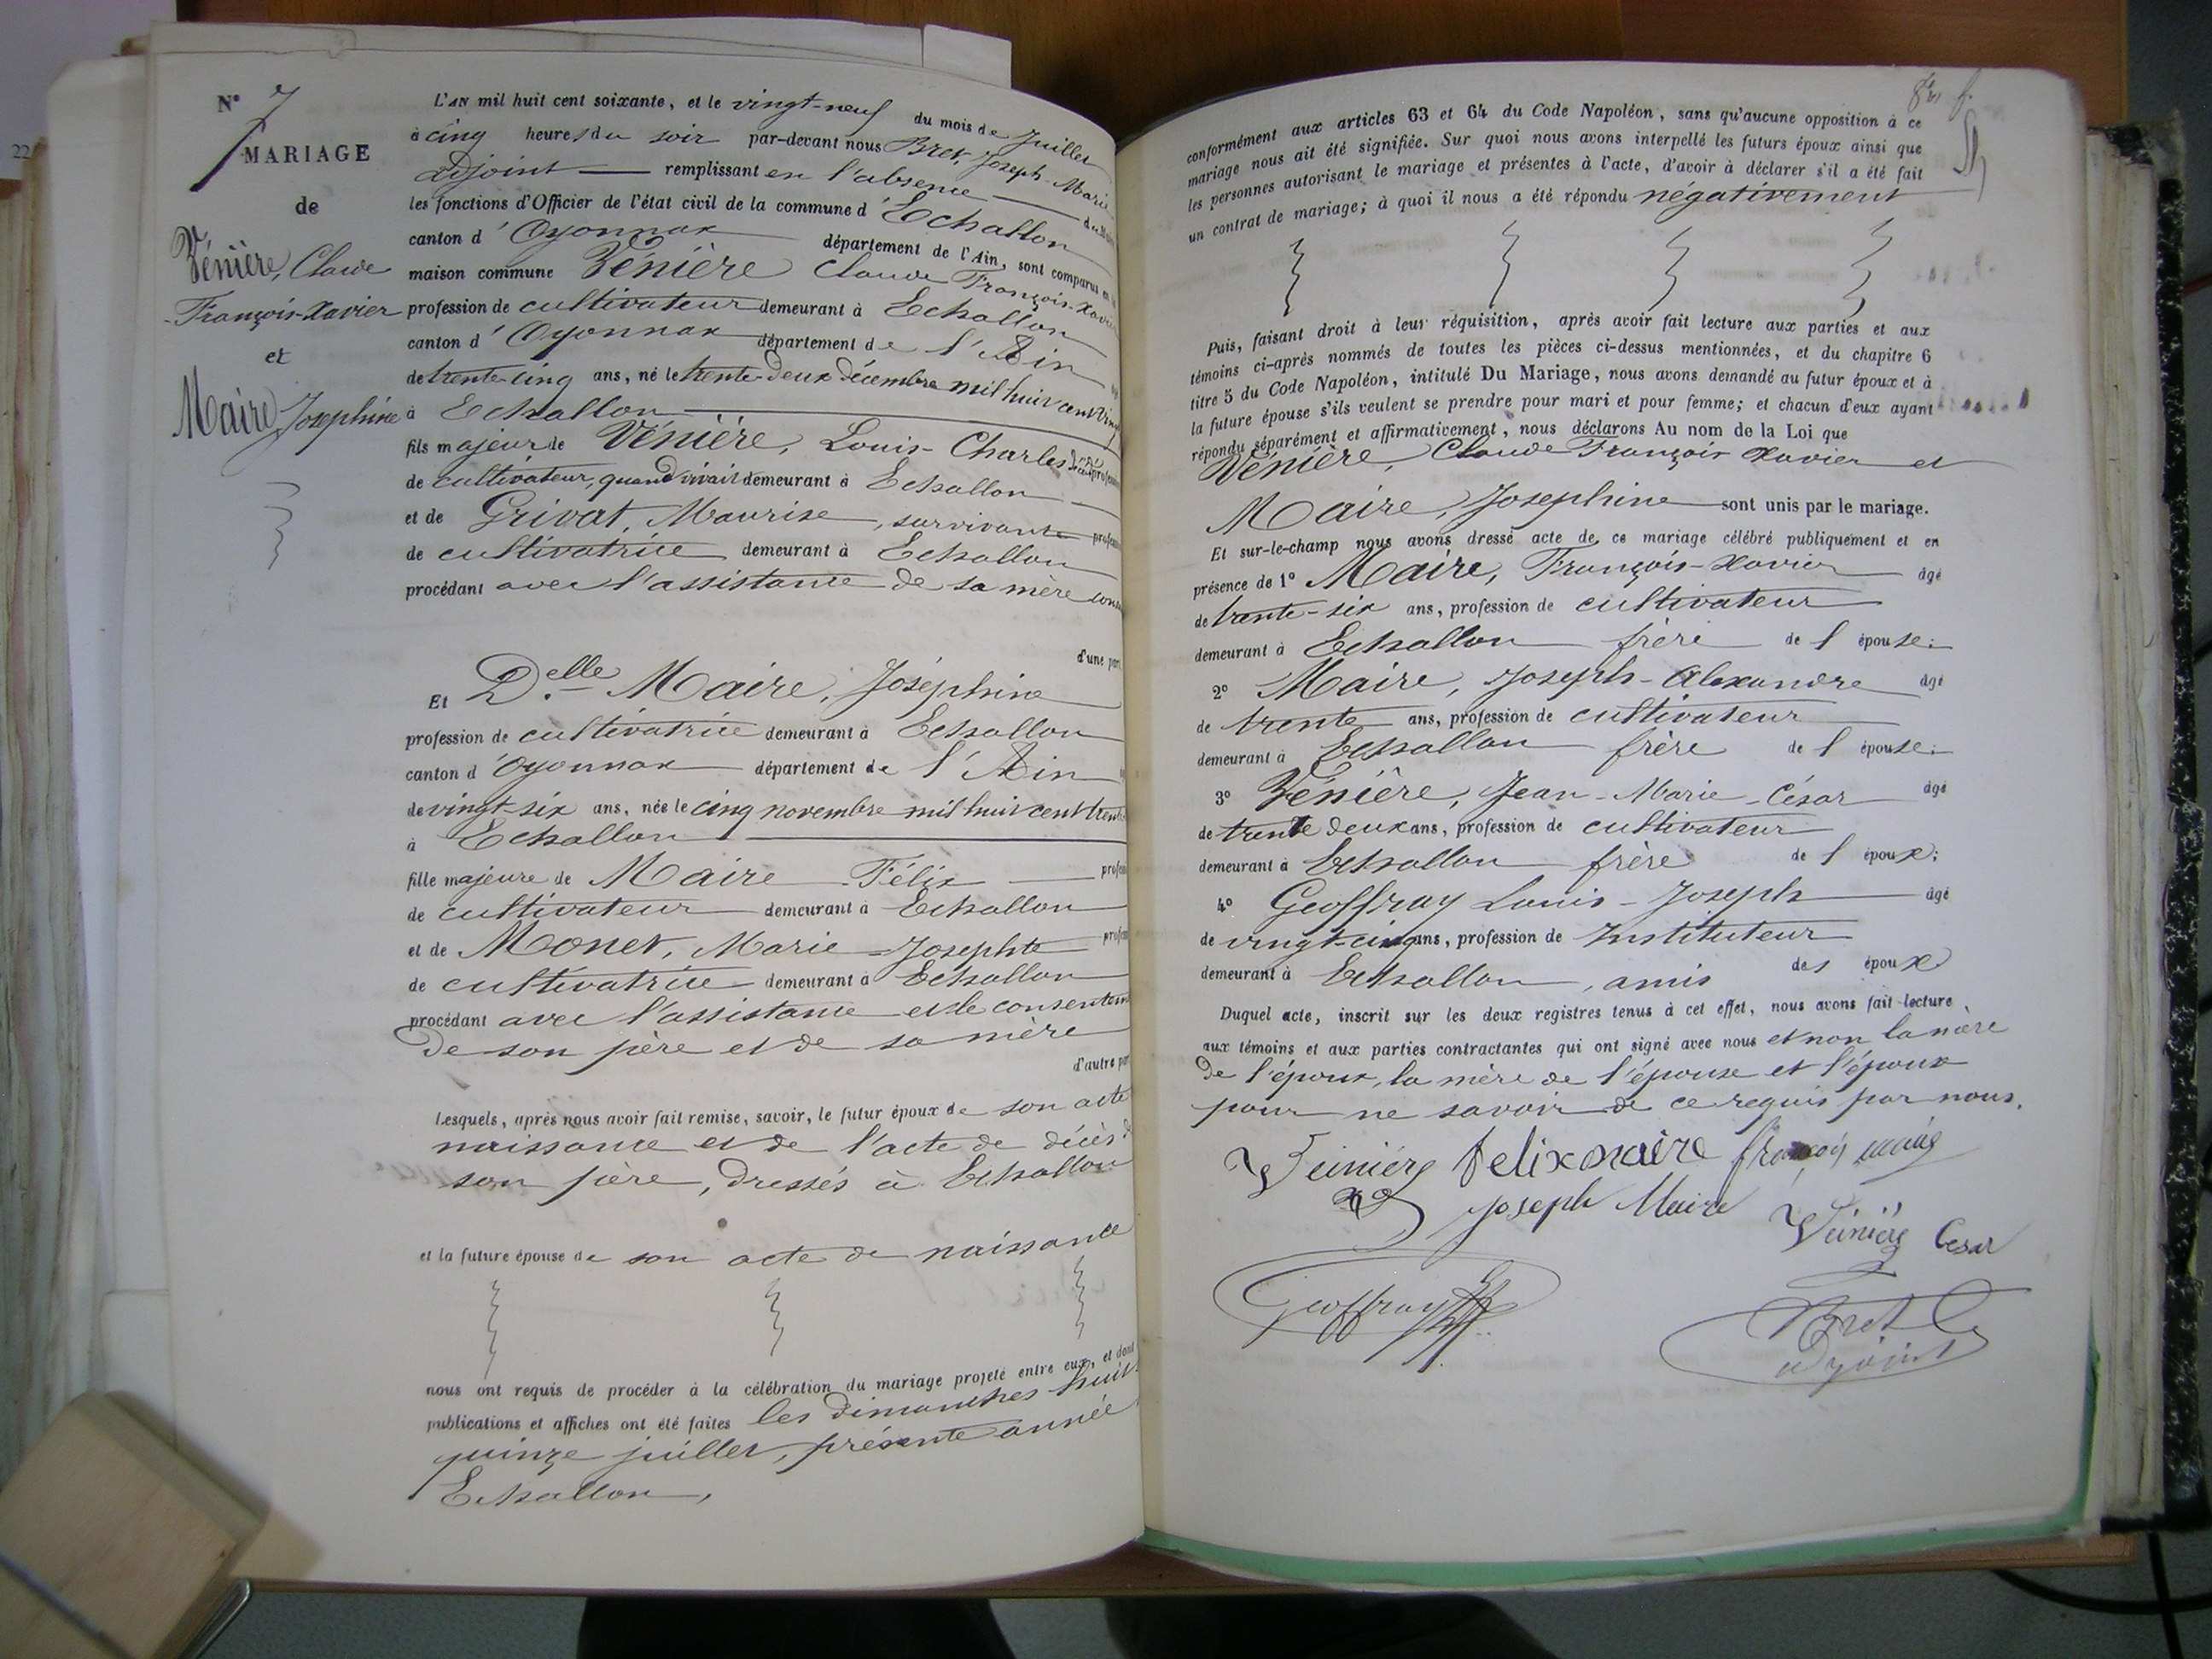 22
N° 7
MARIAGE
de
Vénière, Claude
François-Xavier
et
Maire Josephine
L'AN mil huit cent soixante, et le vingt-neuf du mois de Juillet
à cinq heures du soir par-devant nous Bret, Joseph-Marie
adjoint remplissant en l'absence du
les fonctions d'Officier de l'état civil de la commune d'Echallon
canton d'Oyonnax département de l'Ain, sont comparus en
maison commune Vénière Claude François-Xavier
profession de cultivateur demeurant à Echallon
canton d'Oyonnax département de l'Ain
de trente-cinq ans, né le trente-deux décembre mil huit cent vingt
à Echallon
fils majeur de Vénière, Louis-Charles
de cultivateur, quand vivait demeurant à Echallon
et de Grivat, Maurise, survivante
de cultivatrice demeurant à Echallon
procédant avec l'assistance de sa mère
d'une part
Et D.elle Maire, Joséphine
profession de cultivatrice demeurant à Echallon
canton d'Oyonnax département de l'Ain
de vingt-six ans, née le cinq novembre mil huit cent trente
à Echallon
fille majeure de Maire Félix
de cultivateur demeurant à Echallon
et de Monet, Marie-Josephte
de cultivatrice demeurant à Echallon
procédant avec l'assistance et le consentem
de son père et de sa mère
d'autre par
Lesquels, après nous avoir fait remise, savoir, le futur époux de son acte
naissance et de l'acte de décès d
son père, dressés à Echallon
et la future épouse de son acte de naissance
nous ont requis de procéder à la célébration du mariage projeté entre eux, et dont
publications et affiches ont été faites les dimanches huit
quinze juillet, présente année
Echallon,
conformément aux articles 63 et 64 du Code Napoléon, sans qu'aucune opposition à ce
mariage nous ait été signifiée. Sur quoi nous avons interpellé les futurs époux ainsi que
les personnes autorisant le mariage et présentes à l'acte, d'avoir à déclarer s'il a été fait
un contrat de mariage; à quoi il nous a été répondu négativement
Puis, faisant droit à leur réquisition, après avoir fait lecture aux parties et aux
témoins ci-après nommés de toutes les pièces ci-dessus mentionnées, et du chapitre 6
titre 5 du Code Napoléon, intitulé Du Mariage, nous avons demandé au futur époux et à
la future épouse s'ils veulent se prendre pour mari et pour femme; et chacun d'eux ayant
répondu séparément et affirmativement, nous déclarons Au nom de la Loi que
Vénière, Claude François Xavier et
Maire, Josephine sont unis par le mariage.
Et sur-le-champ nous avons dressé acte de ce mariage célébré publiquement et en
présence de 1° Maire, François-Xavier âgé
de trente-six ans, profession de cultivateur
demeurant à Echallon frère de l'épouse;
2° Maire, Joseph-Alexandre âgé
de trente ans, profession de cultivateur
demeurant à Echallon frère de l'épouse;
3° Vénière, Jean-Marie-César âgé
de trente deux ans, profession de cultivateur
demeurant à Echallon frère de l'époux;
4° Geoffray Louis-Joseph âgé
de vingt-cinq ans, profession de Instituteur
demeurant à Echallon, amis des époux
Duquel acte, inscrit sur les deux registres tenus à cet effet, nous avons fait lecture
aux témoins et aux parties contractantes qui ont signé avec nous et non la mère
de l'époux, la mère de l'épouse et l'époux
pour ne savoir de ce requis par nous.
Veinière felix maire françois maire
Joseph Maire
Veinière Cesar
Geoffray
Bret
adjoint